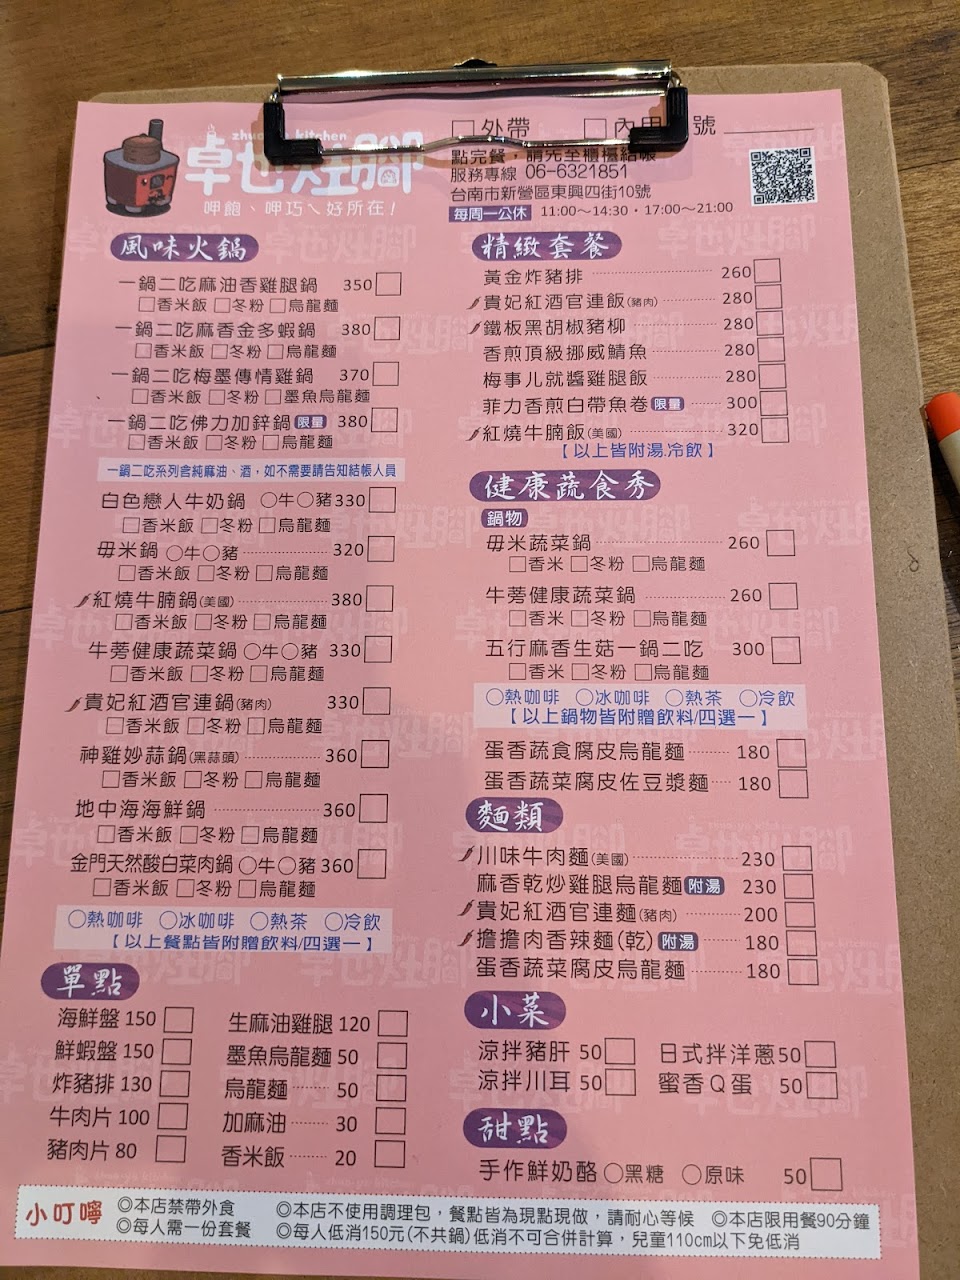 zhuo-ye kitchen
卓也灶腳
呷飽、呷巧ㄟ好所在!
□外帶 □內用 號
點完餐，請先至櫃檯結帳
服務專線 06-6321851
台南市新營區東興四街10號
每周一公休 11:00~14:30・17:00~21:00
風味火鍋
一鍋二吃麻油香雞腿鍋 350□
□香米飯 □冬粉 □烏龍麵
一鍋二吃麻香金多蝦鍋 380□
□香米飯 □冬粉 □烏龍麵
一鍋二吃梅墨傳情雞鍋 370□
□香米飯 □冬粉 □墨魚烏龍麵
一鍋二吃佛力加鋅鍋 限量 380□
□香米飯 □冬粉 □烏龍麵
一鍋二吃系列含純麻油、酒，如不需要請告知結帳人員
白色戀人牛奶鍋 ○牛○豬 330□
□香米飯 □冬粉 □烏龍麵
毋米鍋 ○牛○豬 320□
□香米飯 □冬粉 □烏龍麵
紅燒牛腩鍋(美國) 380□
□香米飯 □冬粉 □烏龍麵
牛蒡健康蔬菜鍋 ○牛○豬 330□
□香米飯 □冬粉 □烏龍麵
貴妃紅酒官連鍋(豬肉) 330□
□香米飯 □冬粉 □烏龍麵
神雞妙蒜鍋(黑蒜頭) 360□
□香米飯 □冬粉 □烏龍麵
地中海海鮮鍋 360□
□香米飯 □冬粉 □烏龍麵
金門天然酸白菜肉鍋 ○牛○豬 360□
□香米飯 □冬粉 □烏龍麵
○熱咖啡 ○冰咖啡 ○熱茶 ○冷飲
【以上餐點皆附贈飲料/四選一】
單點
海鮮盤 150□ 生麻油雞腿 120□
鮮蝦盤 150□ 墨魚烏龍麵 50□
炸豬排 130□ 烏龍麵 50□
牛肉片 100□ 加麻油 30□
豬肉片 80□ 香米飯 20□
精緻套餐
黃金炸豬排 260□
貴妃紅酒官連飯(豬肉) 280□
鐵板黑胡椒豬柳 280□
香煎頂級挪威鯖魚 280□
梅事儿就醬雞腿飯 280□
菲力香煎白帶魚卷 限量 300□
紅燒牛腩飯(美國) 320□
【以上皆附湯.冷飲】
健康蔬食秀
鍋物
毋米蔬菜鍋 260□
□香米 □冬粉 □烏龍麵
牛蒡健康蔬菜鍋 260□
□香米 □冬粉 □烏龍麵
五行麻香生菇一鍋二吃 300□
□香米 □冬粉 □烏龍麵
○熱咖啡 ○冰咖啡 ○熱茶 ○冷飲
【以上鍋物皆附贈飲料/四選一】
蛋香蔬食腐皮烏龍麵 180□
蛋香蔬菜腐皮佐豆漿麵 180□
麵類
川味牛肉麵(美國) 230□
麻香乾炒雞腿烏龍麵 附湯 230□
貴妃紅酒官連麵(豬肉) 200□
擔擔肉香辣麵(乾) 附湯 180□
蛋香蔬菜腐皮烏龍麵 180□
小菜
涼拌豬肝 50□ 日式拌洋蔥 50□
涼拌川耳 50□ 蜜香Q蛋 50□
甜點
手作鮮奶酪 ○黑糖 ○原味 50□
小叮嚀
◎本店禁帶外食 ◎本店不使用調理包，餐點皆為現點現做，請耐心等候 ◎本店限用餐90分鐘
◎每人需一份套餐 ◎每人低消150元(不共鍋)低消不可合併計算，兒童110cm以下免低消